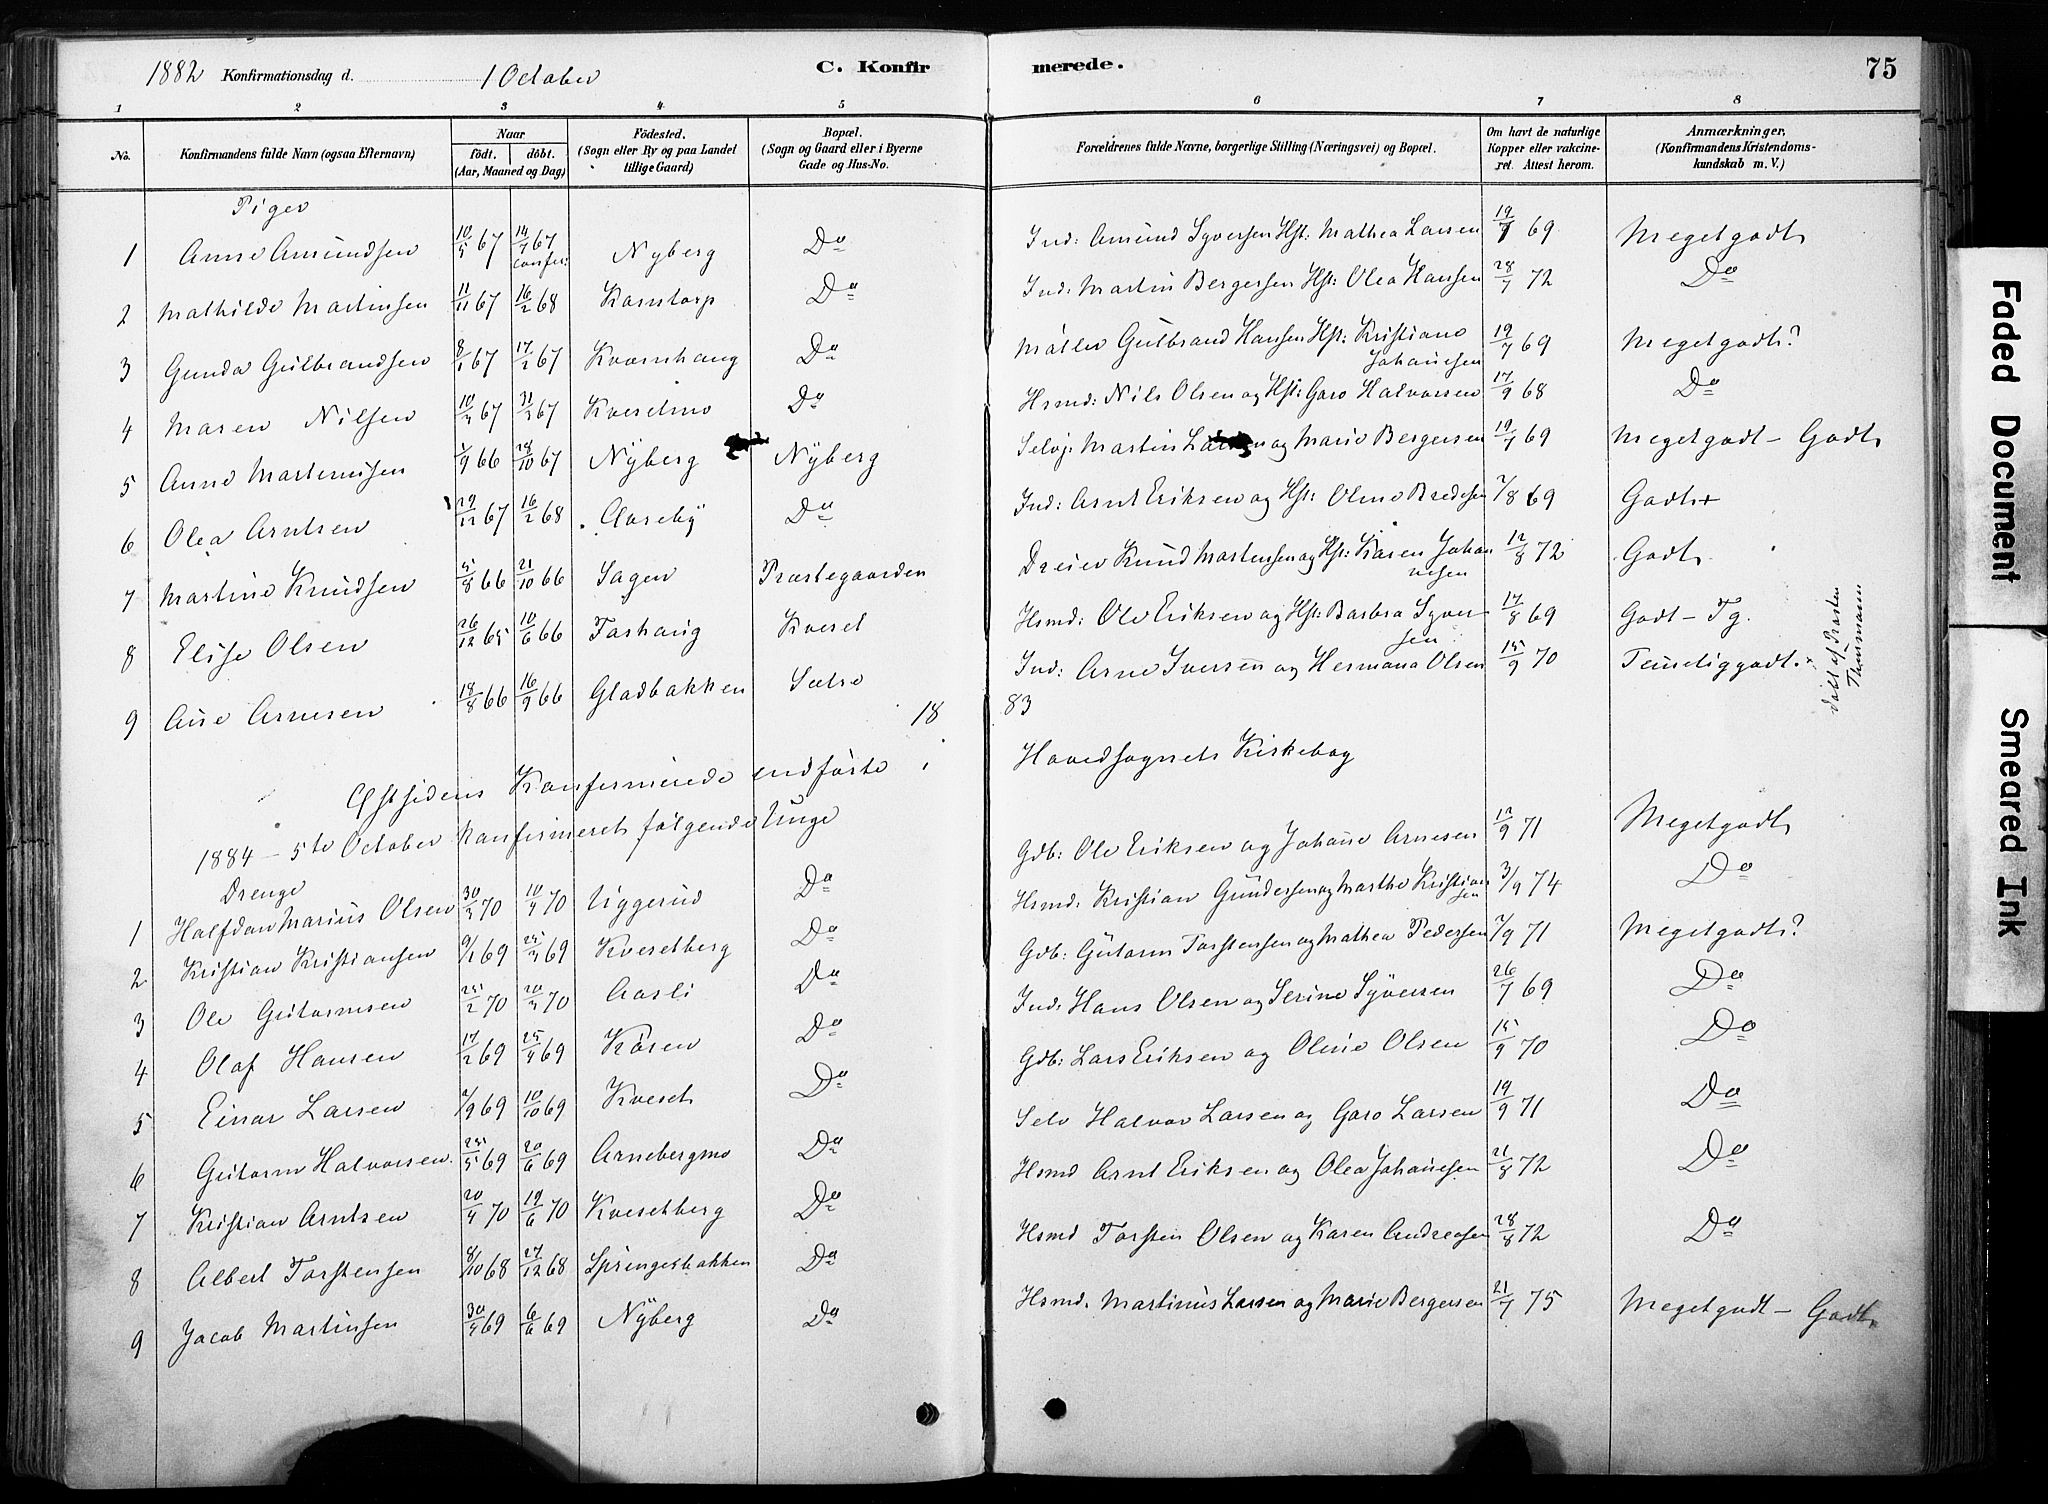 1882 Konfirmationsdag d. 1 October C. Konfirmerede. 75
1 2 3 4 5 6 7 8
No. Konfirmandens fulde Navn (ogsaa Efternavn) Naar födt. döbt. (Aar, Maaned og Dag) Födested. (Sogn eller By og paa Landet tillige Gaard) Bopæl. (Sogn og Gaard eller i Byerne Gade og Hus-No. Forældrenes fulde Navne, borgerlige Stilling (Næringsvei) og Bopæl. Om havt de naturlige Kopper eller vakcineret. Attest herom. Anmærkninger, (Konfirmandens Kristendomskundskab m. V.)
Piger
1 Anne Amundsen 10/5 67 14/7 67 confir: Nyberg Do Ind: Amund Syversen Hst: Mathea Larsen 19/7 69 Megetgodt
2 Mathilde Martinsen 11/11 67 16/2 68 Korntorp Do Ind: Martin Bergersen Hst: Olea Hansen 28/7 72 Do
3 Gunda Gulbrandsen 8/1 67 17/2 67 Kværnhaug Do Möller Gulbrand Hansen Hst: Kristiane Johannesen 19/7 69 Megetgodt?
4 Maren Nilsen 10/3 67 31/3 67 Kvesetmo Do Hsmd: Nils Olsen og Hst: Goro Halvorsen 17/9 68 Do
5 Anne Martinusen 1/9 66 28/10 67 Nyberg Nyberg Selvp Martin Larsen og Marie Bergersen 19/7 69 Megetgodt - Godt
6 Olea Arntsen 29/12 67 16/2 68 Aaseby Do Ind: Arnt Eriksen og Hst: Oline Bredesen 7/8 69 Godt+
7 Martine Knudsen 5/8 66 21/10 66 Sagen Præstegaarden Dreier Knud Martensen og Hst: Karen Johannesen 12/8 72 Godt
8 Elise Olsen 26/12 65 10/6 66 Torhaug Kveset Hsmd: Ole Eriksen og Hst: Barbra Syversen 17/8 69 Godt - Tg.
9 Ane Arnesen 18/8 66 16/9 66 Gladbakken Sætre Ind: Arne Iversen og Hermana Olsen 15/9 70 Temeliggodt.
döbt af Præsten
1883
Østsidens Konfirmerede indförte i Hovedsognets Kirkebog
1884 - 5te October konfirmeret følgende Unge
Drenge
1 Halfdan Marius Olsen 30/3 70 10/4 70 Uggerud Do Gdb: Ole Eriksen og Johanne Arnesen 12/9 71 Megetgodt
2 Kristian Kristiansen 9/1 69 25/3 69 Kvesetberg Do Hsmd. Kristian Gundersen og Marthe Kristiansen 3/9 74 Do
3 Ole Gutormsen 25/2 70 20/3 70 Aasli Do Gdb: Gutorm Torstensen og Mathea Pedersen 7/9 71 Megetgodt?
4 Olaf Hansen 17/2 69 25/4 69 Kösen Do Ind. Hans Olsen og Serine Syversen 26/7 69 Do
5 Einar Larsen 2/9 69 10/10 69 Kveset Do Gdb: Lars Eriksen og Oline Olsen 15/9 70 Do
6 Gutorm Halvorsen. 25/5 69 20/6 69 Arnebergmo Do Selv Halvor Larsen og Goro Larsen 19/9 71 Do
7 Kristian Arntsen 20/4 70 19/6 70 Kvesetberg Do Hsmd Arnt Eriksen og Olea Johannesen 21/8 72 Do
8 Albert Torstensen 8/10 68 27/12 68 Springerbakken Do Hsmd Torsten Olsen og Karen Andreasen 28/8 72 Do
9 Jacob Martinsen 30/4 69 6/6 69 Nyberg Do Hsmd. Martinus Larsen og Marie Bergersen 21/7 75 Megetgodt - Godt
Faded Document
Smeared Ink